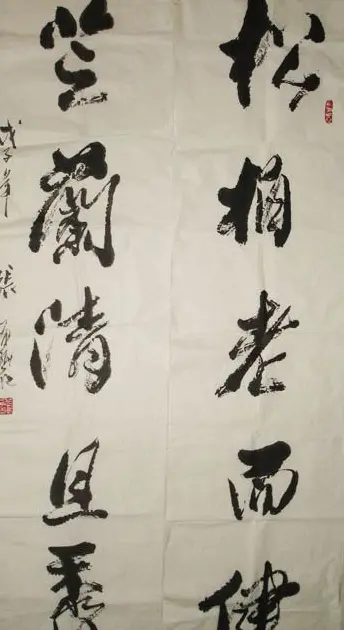 松柏老而健
芝蘭清且香
戊子年 張